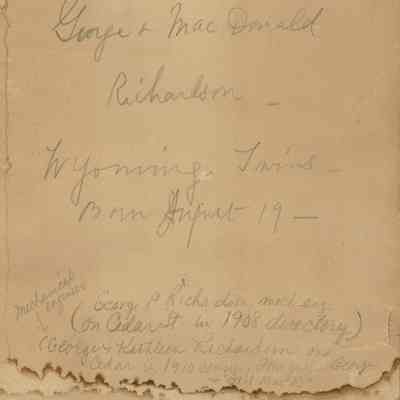 George & Mac Donald
Richardson -
Wyoming. Twins -
Born August 19 -
mechanical
engineer
Georg P Richardson mech eng
(on Cedar St in 1908 directory)
(George & Kathleen Richardson on
Cedar in 1910 Georg